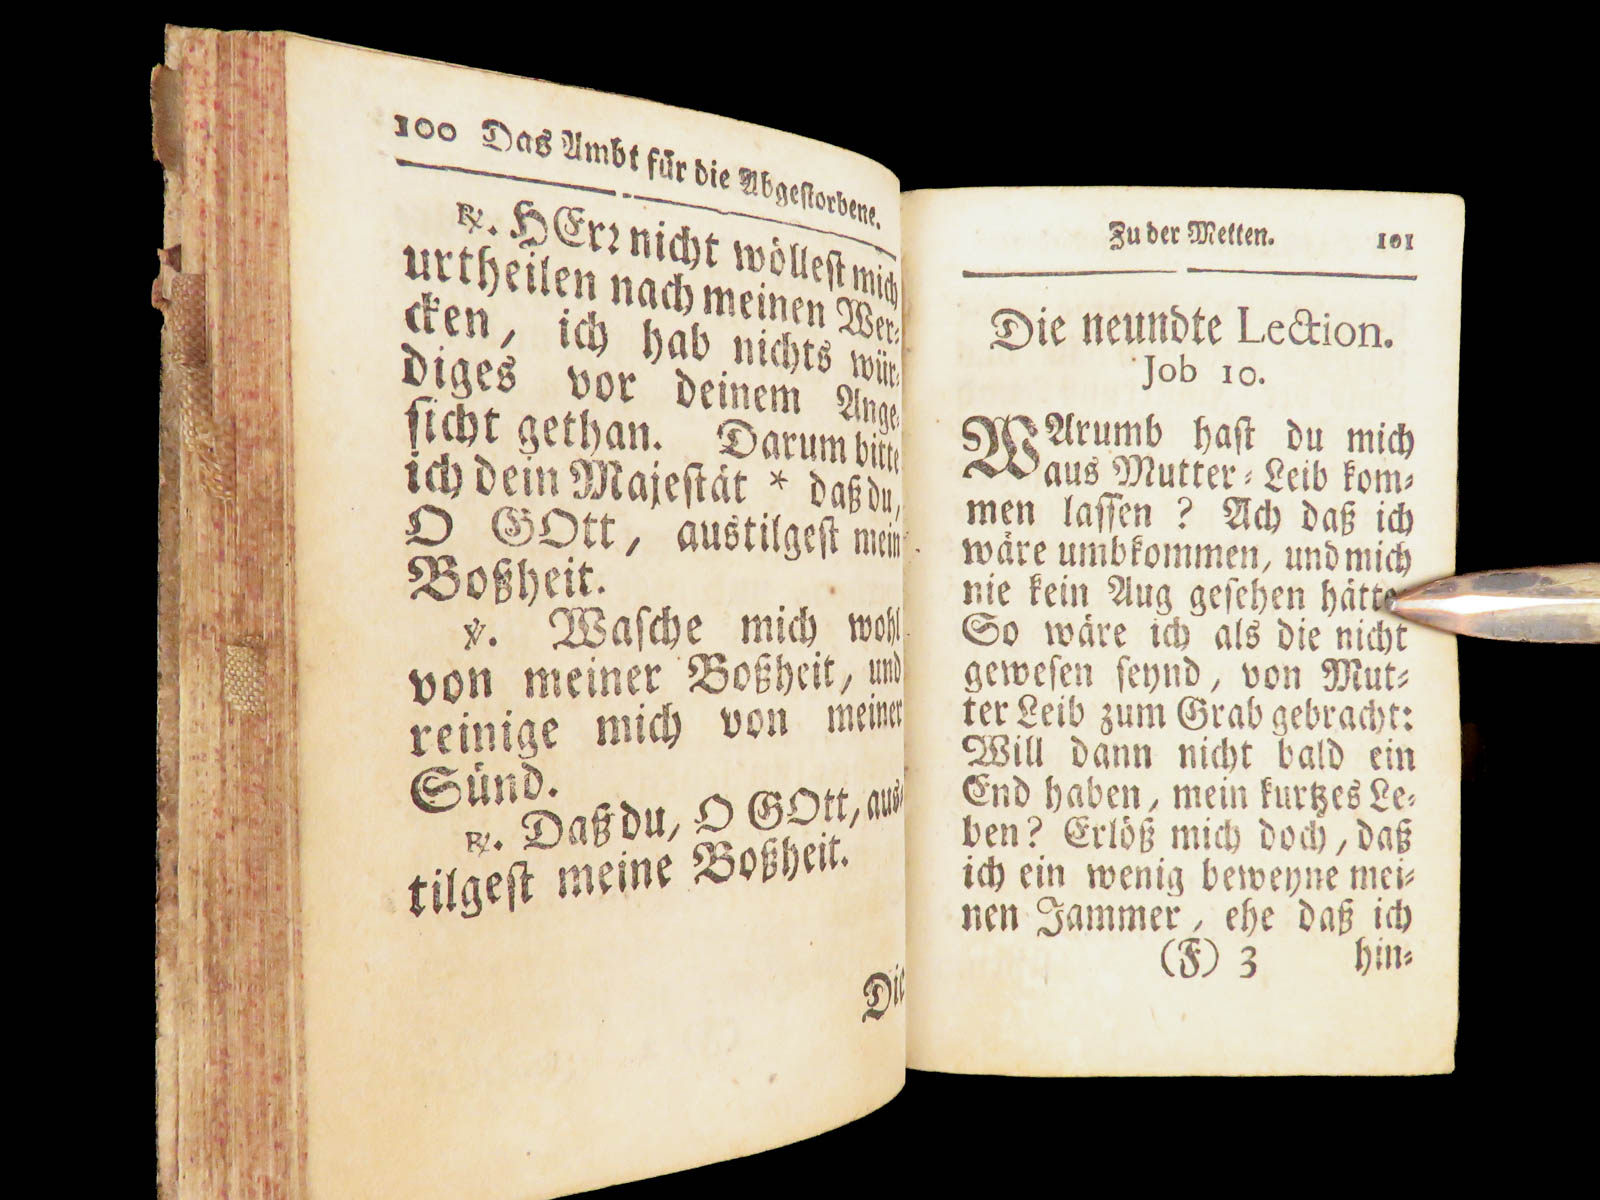 100 Das Ambt für die Abgestorbene.
℟. HErr nicht wöllest mich
urtheilen nach meinen Wer-
cken, ich hab nichts wür-
diges vor deinem Ange-
sicht gethan. Darum bitte
ich dein Majestät * daß du,
O GOtt, austilgest mein
Boßheit.
℣. Wasche mich wohl
von meiner Boßheit, und
reinige mich von meiner
Sünd.
℟. Daß du, O GOtt, aus-
tilgest meine Boßheit.
Die
Zu der Metten. 101
Die neundte Lection.
Job 10.
WArumb hast du mich
aus Mutter-Leib kom-
men lassen? Ach daß ich
wäre umbkommen, und mich
nie kein Aug gesehen hätte
So wäre ich als die nicht
gewesen seynd, von Mut-
ter Leib zum Grab gebracht:
Will dann nicht bald ein
End haben, mein kurtzes Le-
ben? Erlöß mich doch, daß
ich ein wenig beweyne mei-
nen Jammer, ehe daß ich
(F) 3 hin-